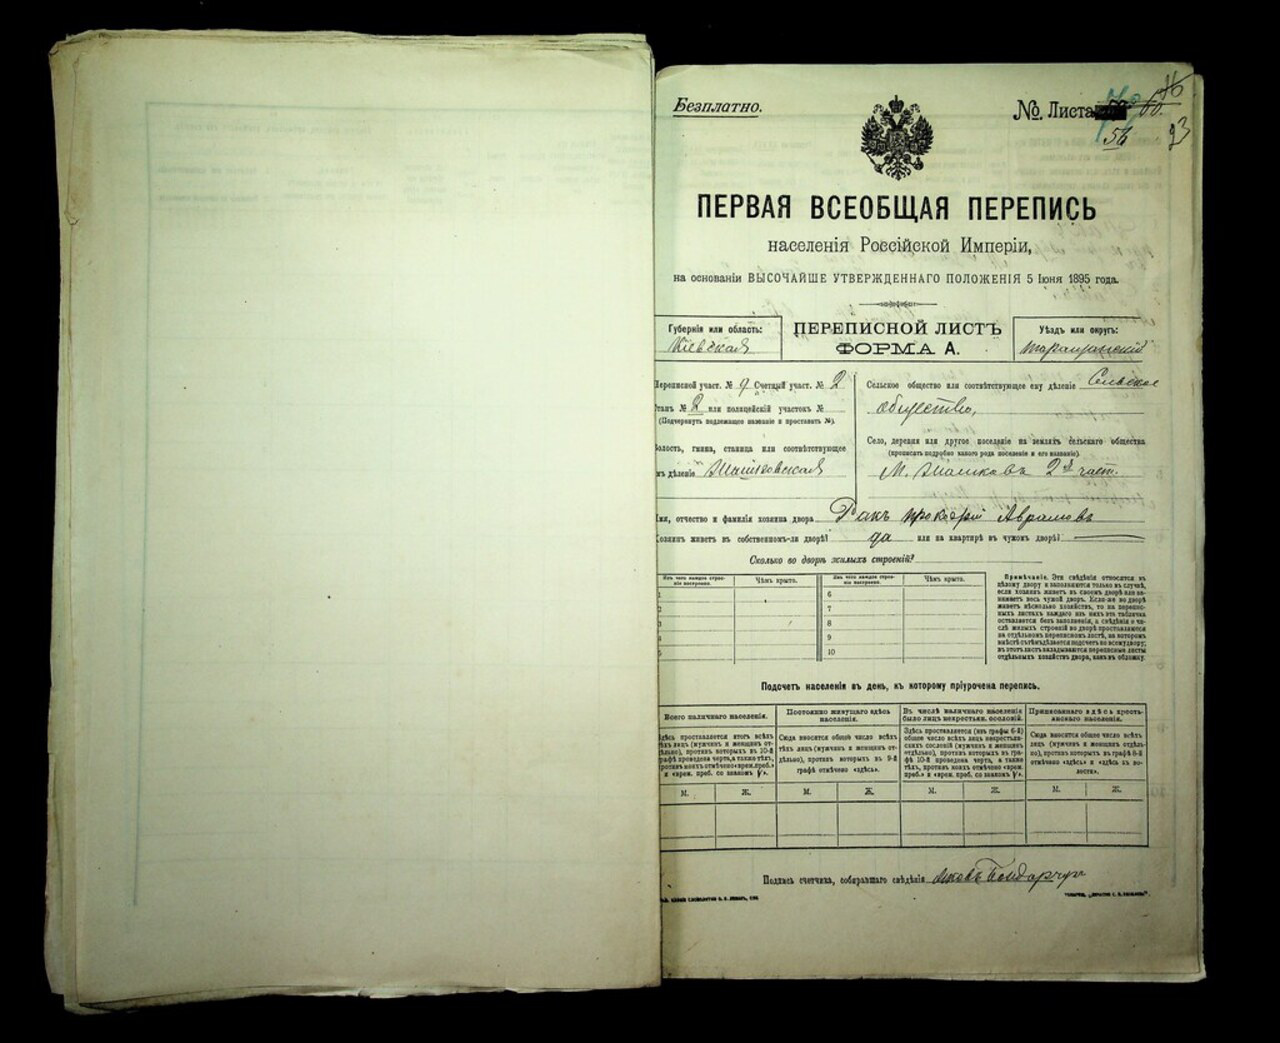 Безплатно.
№. Листа
53
93
ПЕРВАЯ ВСЕОБЩАЯ ПЕРЕПИСЬ
населенія Россійской Имперіи,
на основаніи ВЫСОЧАЙШЕ УТВЕРЖДЕННАГО ПОЛОЖЕНІЯ 5 Іюня 1895 года.
Губернія или область:
Кіевская
ПЕРЕПИСНОЙ ЛИСТЪ
ФОРМА А.
Уѣздъ или округъ:
Таращанскій
Переписной участ. № 9 Счетный участ. № 2
Станъ № 2 или полицейскій участокъ №
(Подчеркнуть подлежащее названіе и проставить №).
Волость, гмина, станица или соотвѣтствующее
имъ дѣленіе
Сельское общество или соотвѣтствующее ему дѣленіе Сельское
общество,
Село, деревня или другое поселеніе на земляхъ сельскаго общества
(прописать подробно какого рода поселеніе и его названіе).
М. 2й част.
Имя, отчество и фамилія хозяина двора Ракъ Прокофій Аврамовъ
Хозяинъ живетъ въ собственномъ-ли дворѣ? да или на квартирѣ въ чужомъ дворѣ?
Сколько во дворѣ жилыхъ строеній?
Изъ чего каждое строеніе построено.
Чѣмъ крыто.
Изъ чего каждое строеніе построено.
Чѣмъ крыто.
1
2
3
4
5
6
7
8
9
10
Примѣчаніе. Эти свѣдѣнія относятся къ
цѣлому двору и заполняются только въ случаѣ,
если хозяинъ живетъ въ своемъ дворѣ или занимаетъ
весь чужой дворъ. Если-же во дворѣ
живетъ нѣсколько хозяйствъ, то на переписныхъ
листахъ каждаго изъ нихъ эта табличка
оставляется безъ заполненія, а свѣдѣнія о числѣ
жилыхъ строеній во дворѣ проставляются
на отдѣльномъ переписномъ листѣ, на которомъ
вмѣстѣ съ тѣмъ дѣлается подсчетъ по всему двору;
въ этотъ листъ вкладываются переписные листы
отдѣльныхъ хозяйствъ двора, какъ въ обложку.
Подсчетъ населенія въ день, къ которому пріурочена перепись.
Всего наличнаго населенія.
Здѣсь проставляется итогъ всѣхъ
тѣхъ лицъ (мужчинъ и женщинъ отдѣльно),
противъ которыхъ въ 10-й
графѣ проведена черта, а также тѣхъ,
противъ коихъ отмѣчено «врем. преб.»
и «врем. преб. со знакомъ V».
Постоянно живущаго здѣсь
населенія.
Сюда вносится общее число всѣхъ
тѣхъ лицъ (мужчинъ и женщинъ отдѣльно),
противъ которыхъ въ 9-й
графѣ отмѣчено «здѣсь».
Въ числѣ наличнаго населенія
было лицъ некрестьян. сословій.
Здѣсь проставляется (изъ графы 6-й)
общее число всѣхъ лицъ некрестьянскихъ
сословій (мужчинъ и женщинъ
отдѣльно), противъ которыхъ въ графѣ
10-й проведена черта, а также
тѣхъ, противъ коихъ отмѣчено «врем.
преб.» и «врем. преб. со знакомъ V».
Приписаннаго здѣсь крестьянскаго
населенія.
Сюда вносится общее число всѣхъ
лицъ (мужчинъ и женщинъ отдѣльно),
противъ которыхъ въ графѣ 8-й
отмѣчено «здѣсь» и «здѣсь къ волости».
М. Ж. М. Ж. М. Ж. М. Ж.
Подпись счетчика, собиравшаго свѣдѣнія Яковъ Бондарчук